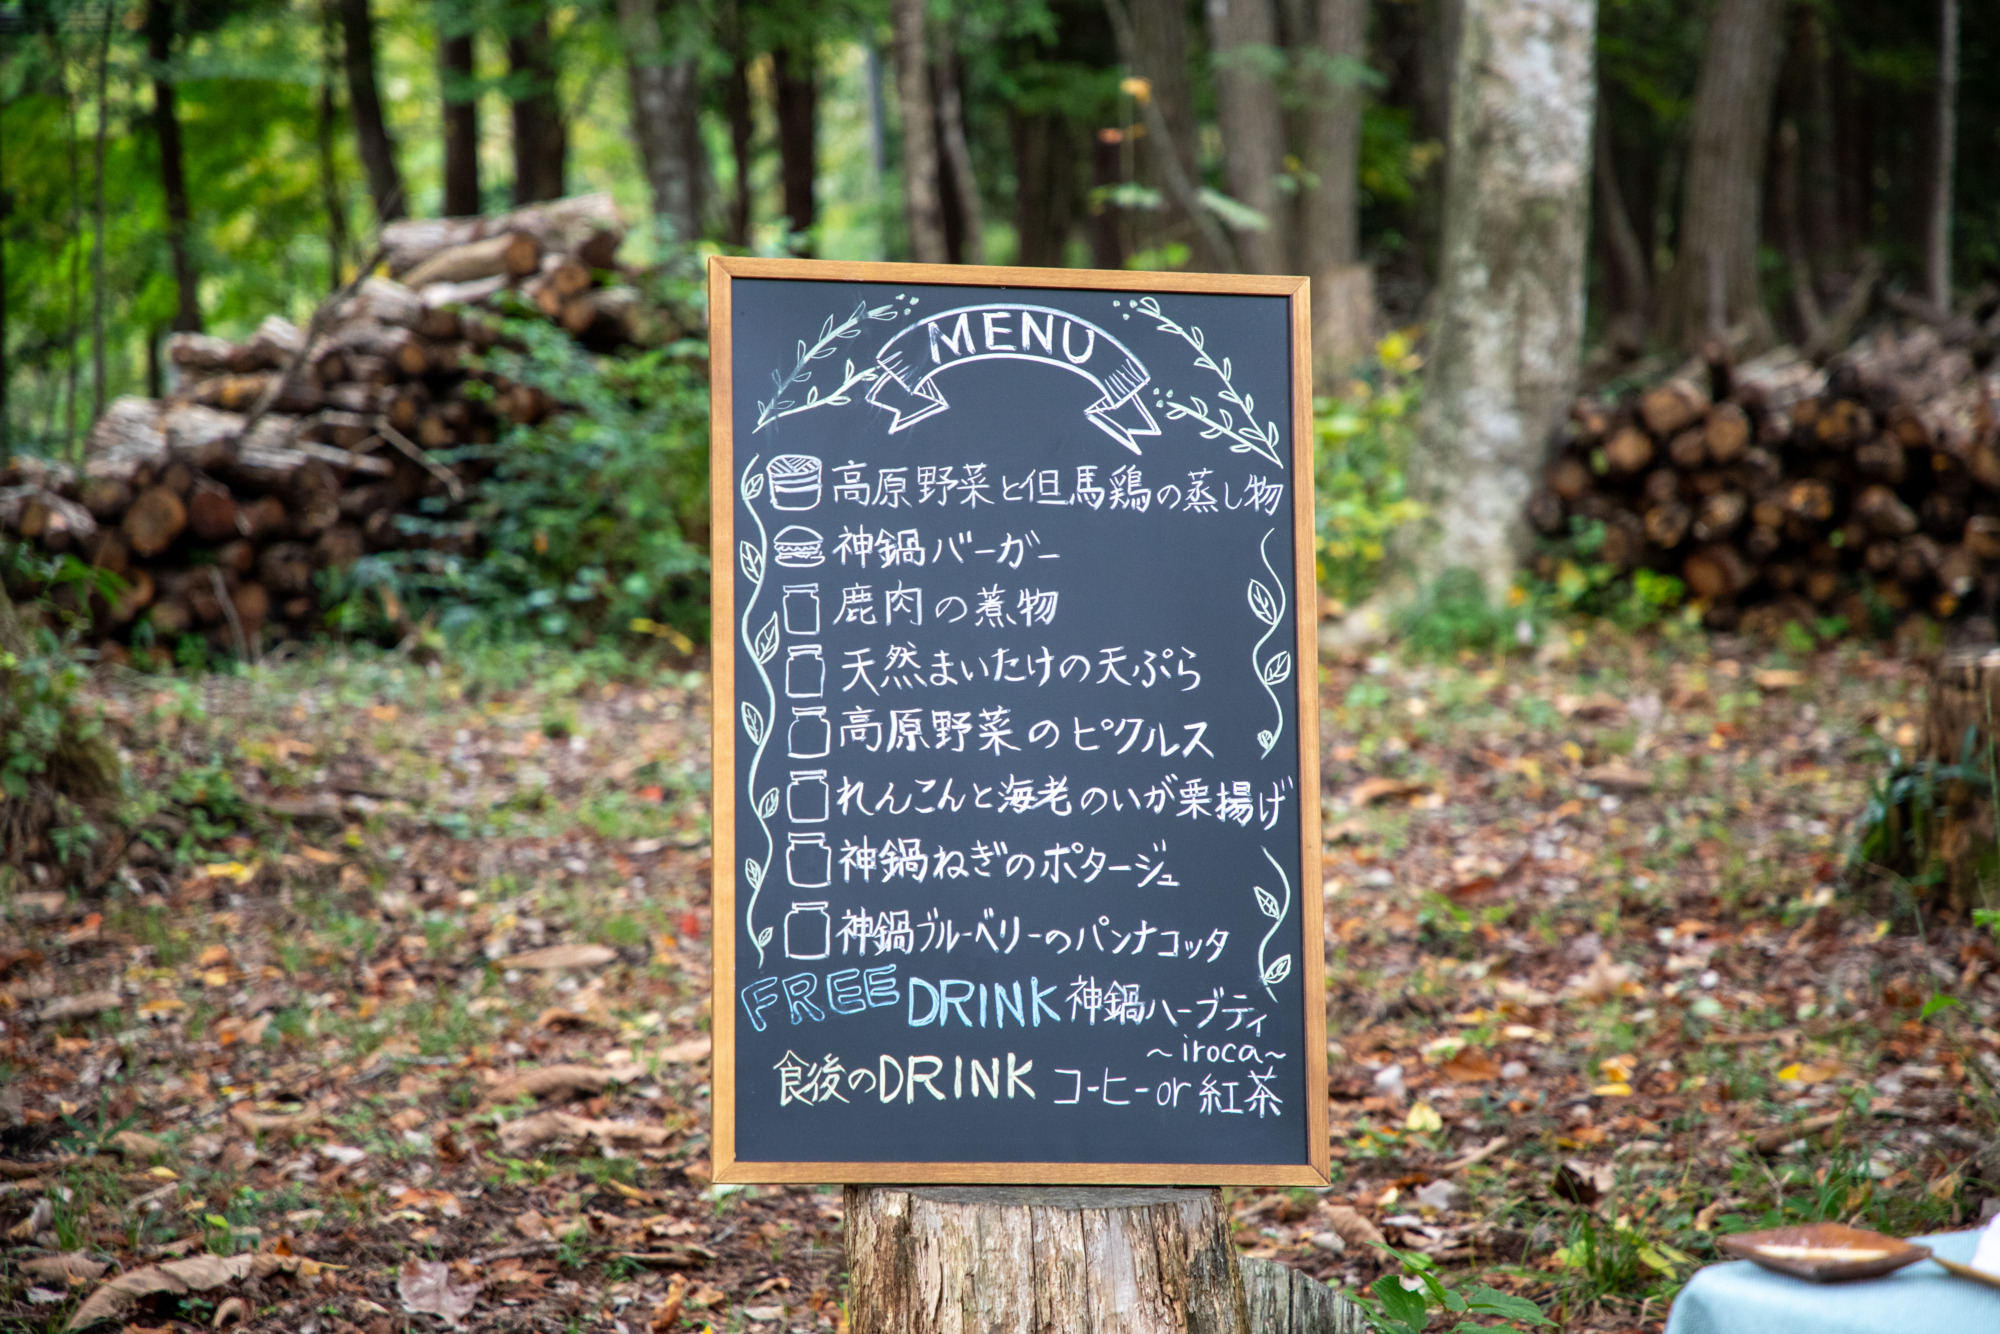 MENU
高原野菜と但馬鶏の蒸し物
神鍋バーガー
鹿肉の煮物
天然まいたけの天ぷら
高原野菜のピクルス
れんこんと海老のいが栗揚げ
神鍋ねぎのポタージュ
神鍋ブルーベリーのパンナコッタ
FREE DRINK 神鍋ハーブティ
~iroca~
食後のDRINK コーヒー or 紅茶